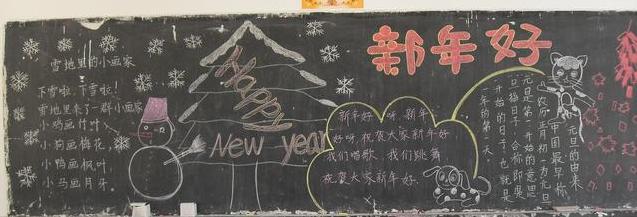 雪地里的小画家
下雪啦，下雪啦！
雪地里来了一群小画家
小鸡画竹叶，
小狗画梅花，
小鸭画枫叶，
小马画月牙。
Happy
New year
新年好
新年好呀，新年
好呀，祝贺大家新年好
我们唱歌，我们跳舞
祝贺大家新年好．
元旦的由来
中国最早称
农历正月初一为元旦
元是第一开始的意思
旦指日子，合称即是
开始的日子，也就是
一年的第一天．